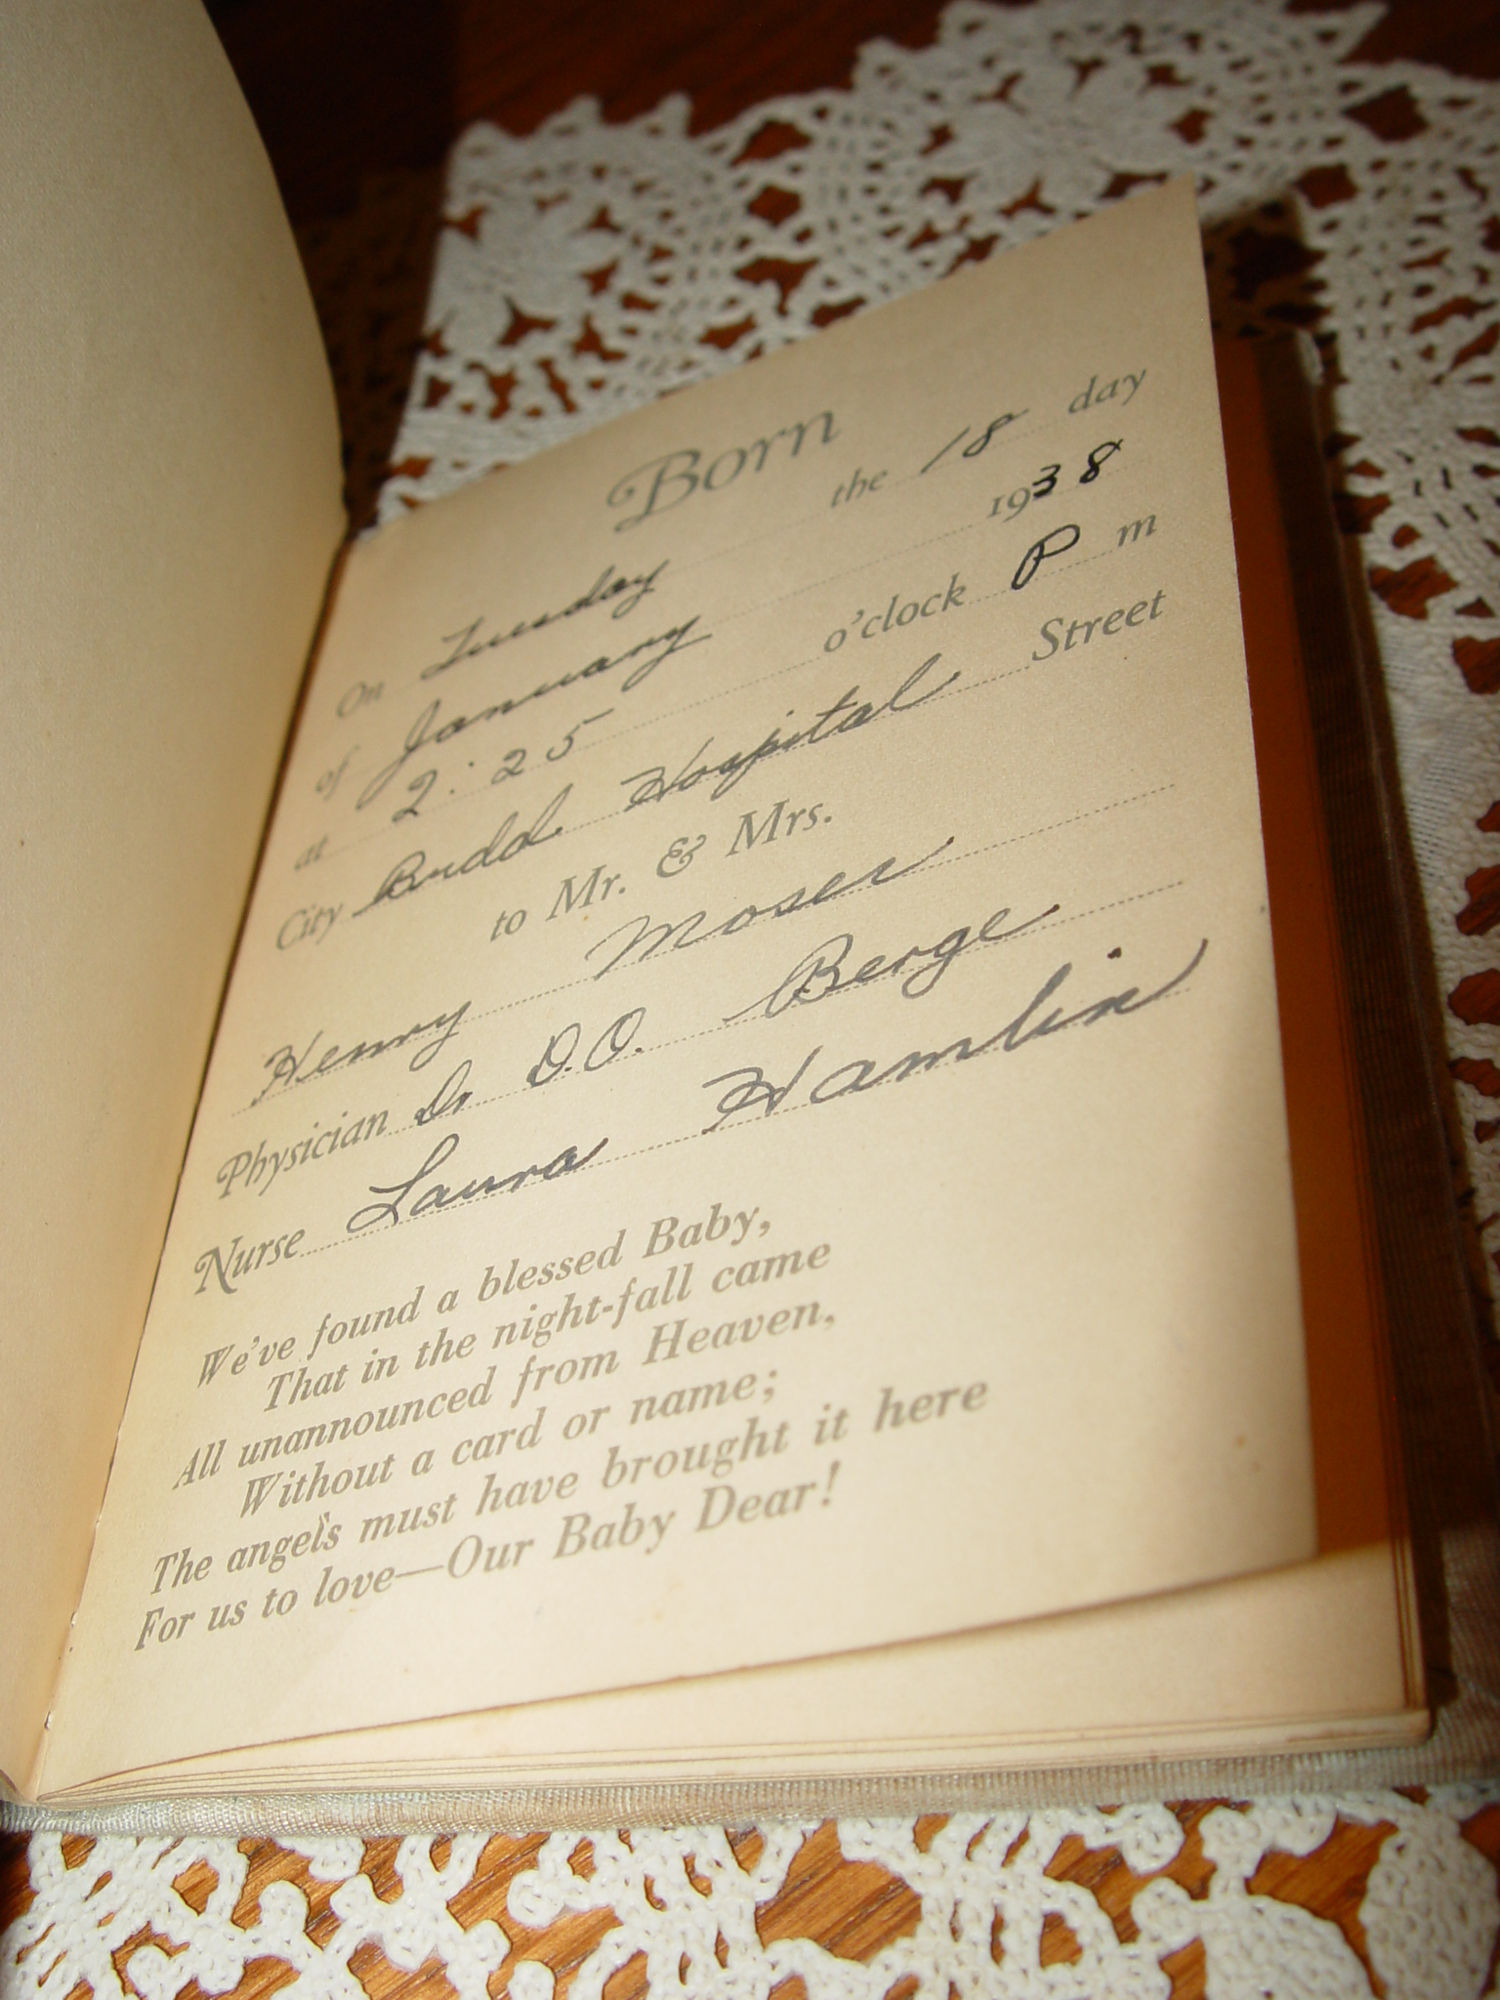 Born
On Tuesday the 18 day
of January 1938
at 2:25 o'clock P m
City Budd Hospital Street
to Mr. & Mrs.
Henry Moser
Physician Dr D.O. Berge
Nurse Laura Hamlin
We've found a blessed Baby,
That in the night-fall came
All unannounced from Heaven,
Without a card or name;
The angels must have brought it here
For us to love—Our Baby Dear!